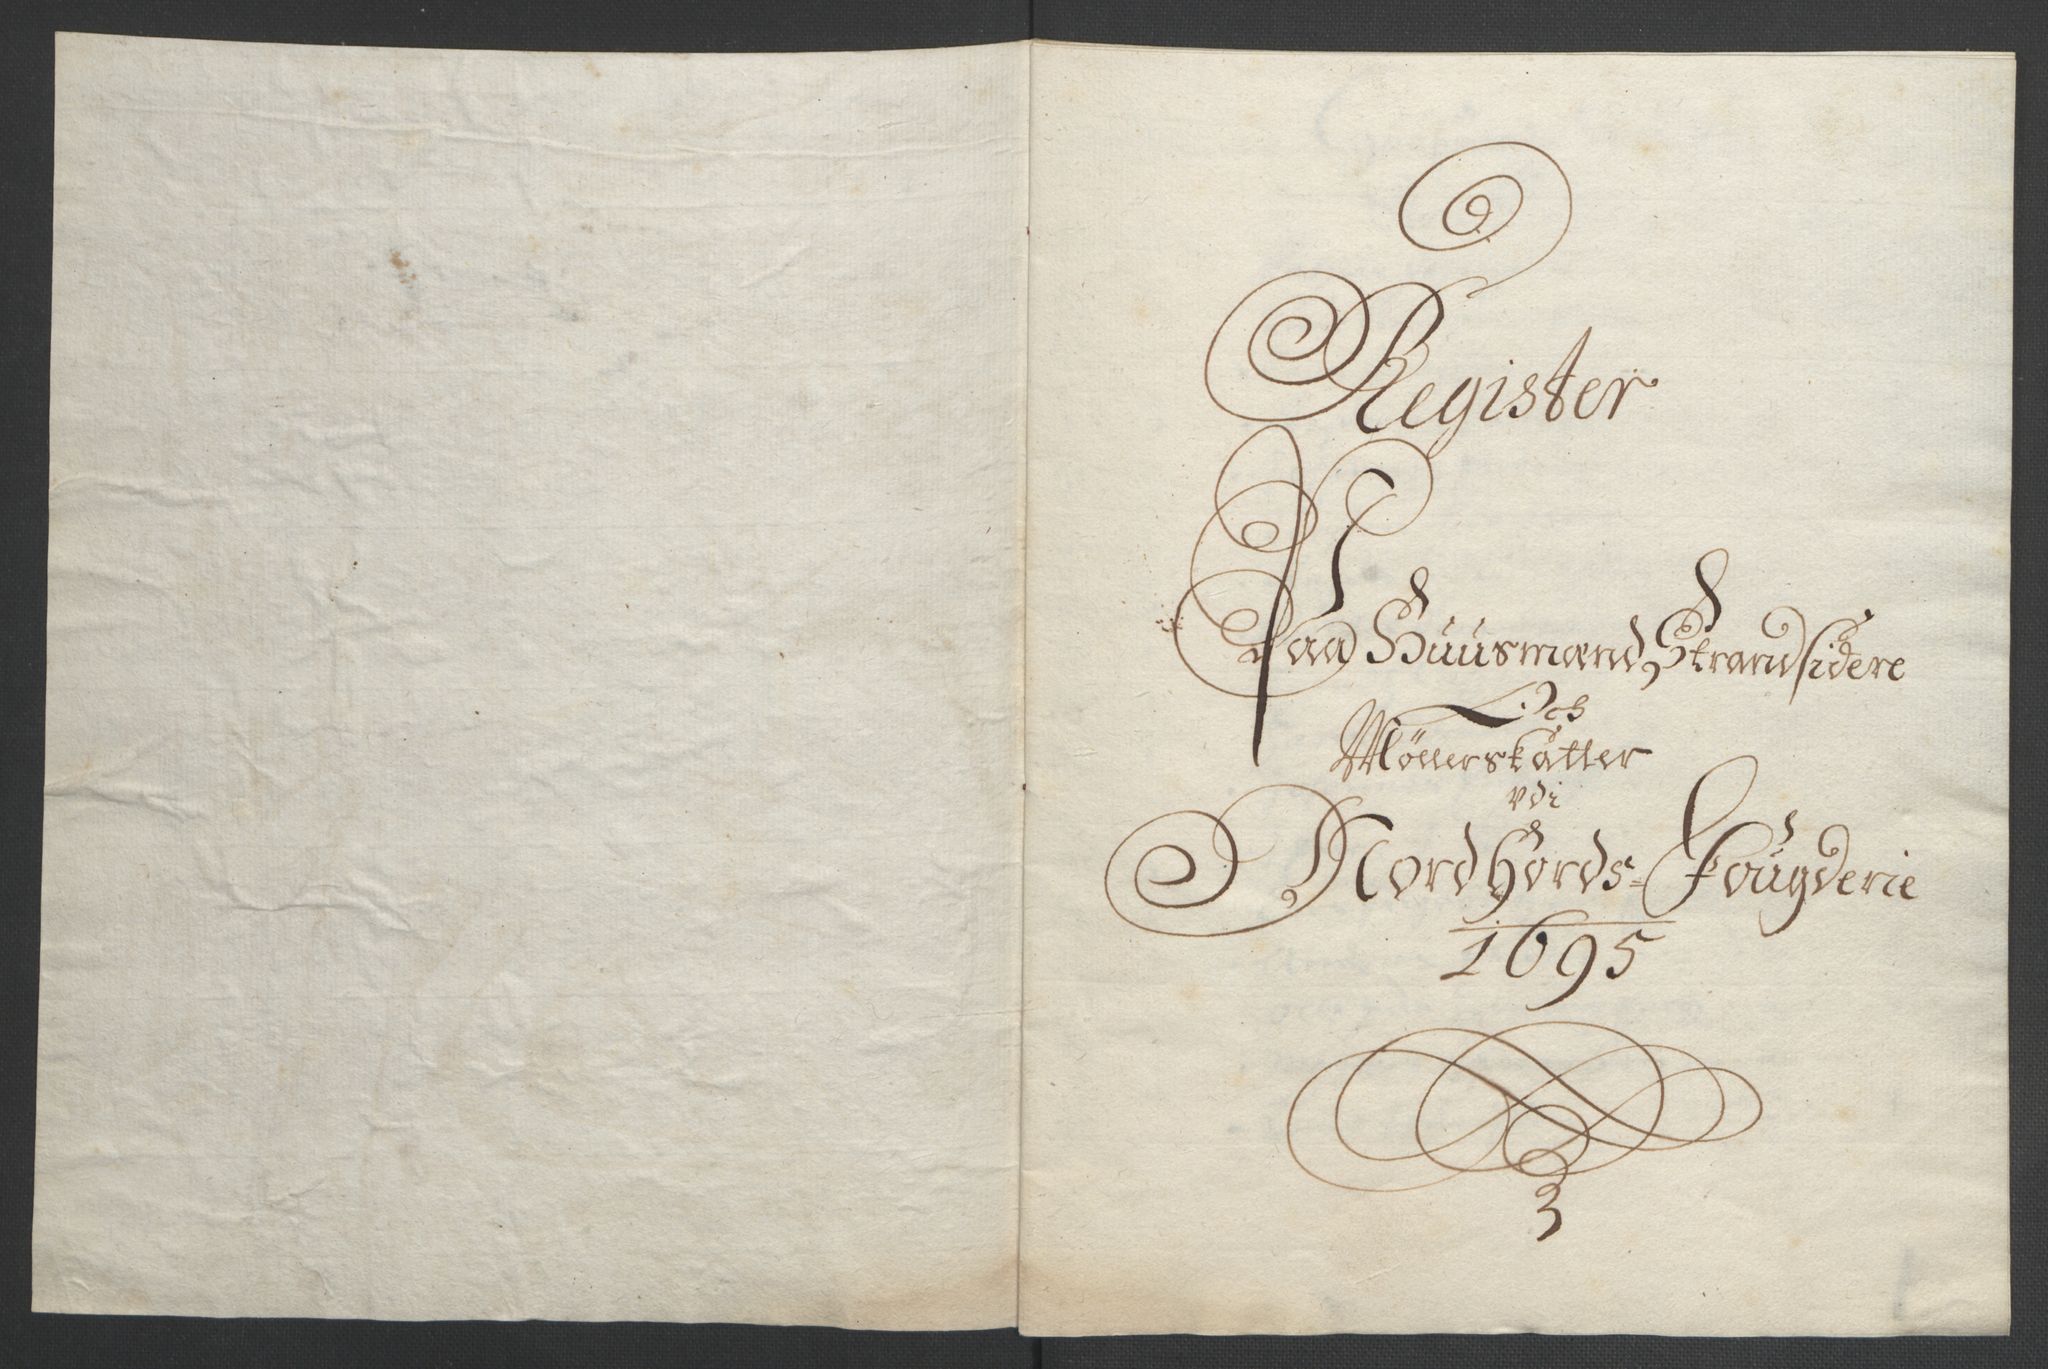 Register
Paa Huusmænd Strandsidere
Och
Möllerskatter
vdi
Nordhords= Fougderie
1695